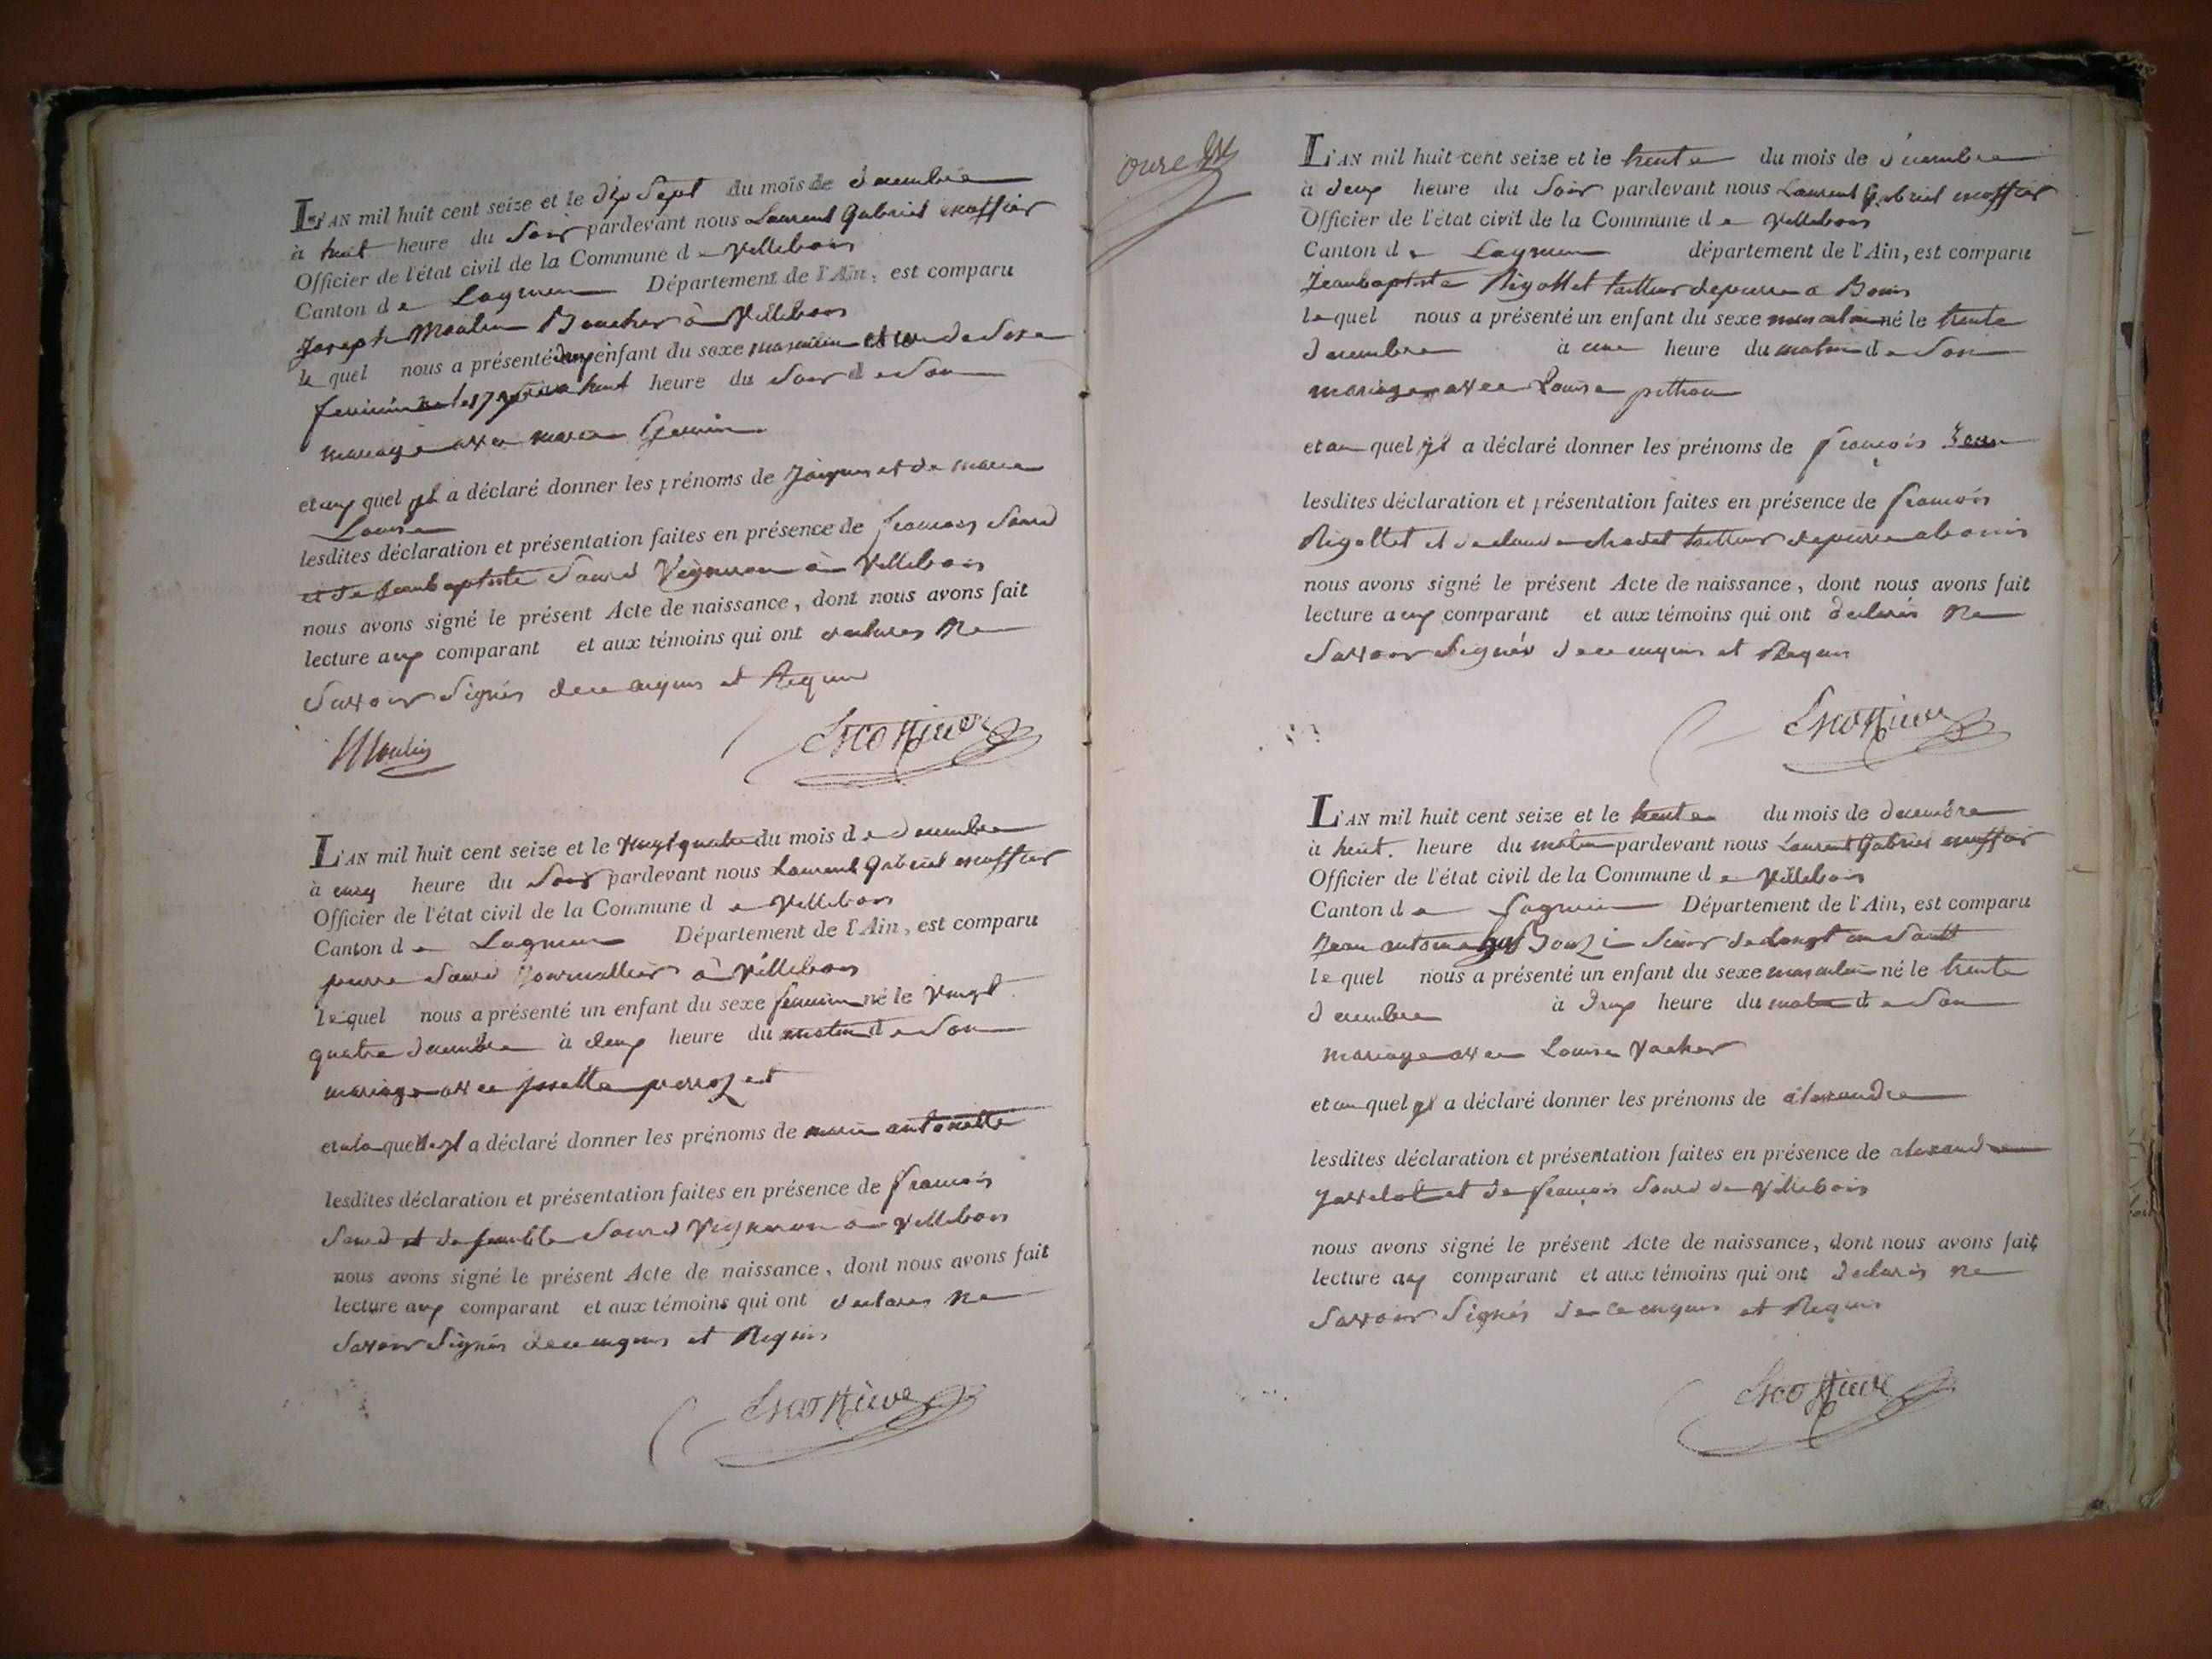 L'AN mil huit cent seize et le dix Sept du mois de decembre
à huit heure du Soir pardevant nous Laurent Gabriel
Officier de l'état civil de la Commune d e Villebois
Canton d e Lagnieu Département de l'Ain, est comparu
Joseph Moulin Boucher à Villebois
le quel nous a présenté deux enfant du sexe masculin et un de Sexe
feminin né le 17 à huit heure du Soir d e Son
mariage avec marie
et aux quel il a déclaré donner les prénoms de Jacques et de marie
Louise
lesdites déclaration et présentation faites en présence de francois Saurd
et de Jeanbaptiste Saurd Vigneron à Villebois
nous avons signé le présent Acte de naissance, dont nous avons fait
lecture aux comparant et aux témoins qui ont declarés Ne
Savoir Signés de ce enquis et Requis
Moulin
L'AN mil huit cent seize et le Vingt quatre du mois d e decembre
à cinq heure du Soir pardevant nous Laurent Gabriel
Officier de l'état civil de la Commune d e Villebois
Canton d e Lagnieu Département de l'Ain, est comparu
pierre Saurd Journallier à Villebois
le quel nous a présenté un enfant du sexe feminin né le Vingt
quatre decembre à deux heure du matin d e Son
mariage avec Josette perrozet
et a la quelle il a déclaré donner les prénoms de marie antoinette
lesdites déclaration et présentation faites en présence de francois
Saurd et de Saurd Vigneron à Villebois
nous avons signé le présent Acte de naissance, dont nous avons fait
lecture aux comparant et aux témoins qui ont declares Ne
Savoir Signés de ce enquis et Requis
L'AN mil huit cent seize et le trente du mois de decembre
à deux heure du Soir pardevant nous Laurent Gabriel
Officier de l'état civil de la Commune d e Villebois
Canton d e Lagnieu département de l'Ain, est comparu
Jeanbaptiste Rigollet tailleur de pierre a Bouis
le quel nous a présenté un enfant du sexe masculin né le trente
decembre à une heure du matin d e Son
mariage avec Louise pithion
et au quel il a déclaré donner les prénoms de francois
lesdites déclaration et présentation faites en présence de francois
Rigollet et de claude chadel tailleur de pierre a bouis
nous avons signé le présent Acte de naissance, dont nous avons fait
lecture aux comparant et aux témoins qui ont declarés Ne
Savoir Signés de ce enquis et Requis
L'AN mil huit cent seize et le trente du mois de decembre
à huit heure du matin pardevant nous Laurent Gabriel
Officier de l'état civil de la Commune d e Villebois
Canton d e Lagnieu Département de l'Ain, est comparu
Jean antoine
le quel nous a présenté un enfant du sexe masculin né le trente
decembre à deux heure du matin d e Son
mariage avec Louise Vacher
et au quel il a déclaré donner les prénoms de alexandre
lesdites déclaration et présentation faites en présence de alexandre
Javelot et de francois Saurd de Villebois
nous avons signé le présent Acte de naissance, dont nous avons fait
lecture aux comparant et aux témoins qui ont declarés Ne
Savoir Signés de ce enquis et Requis